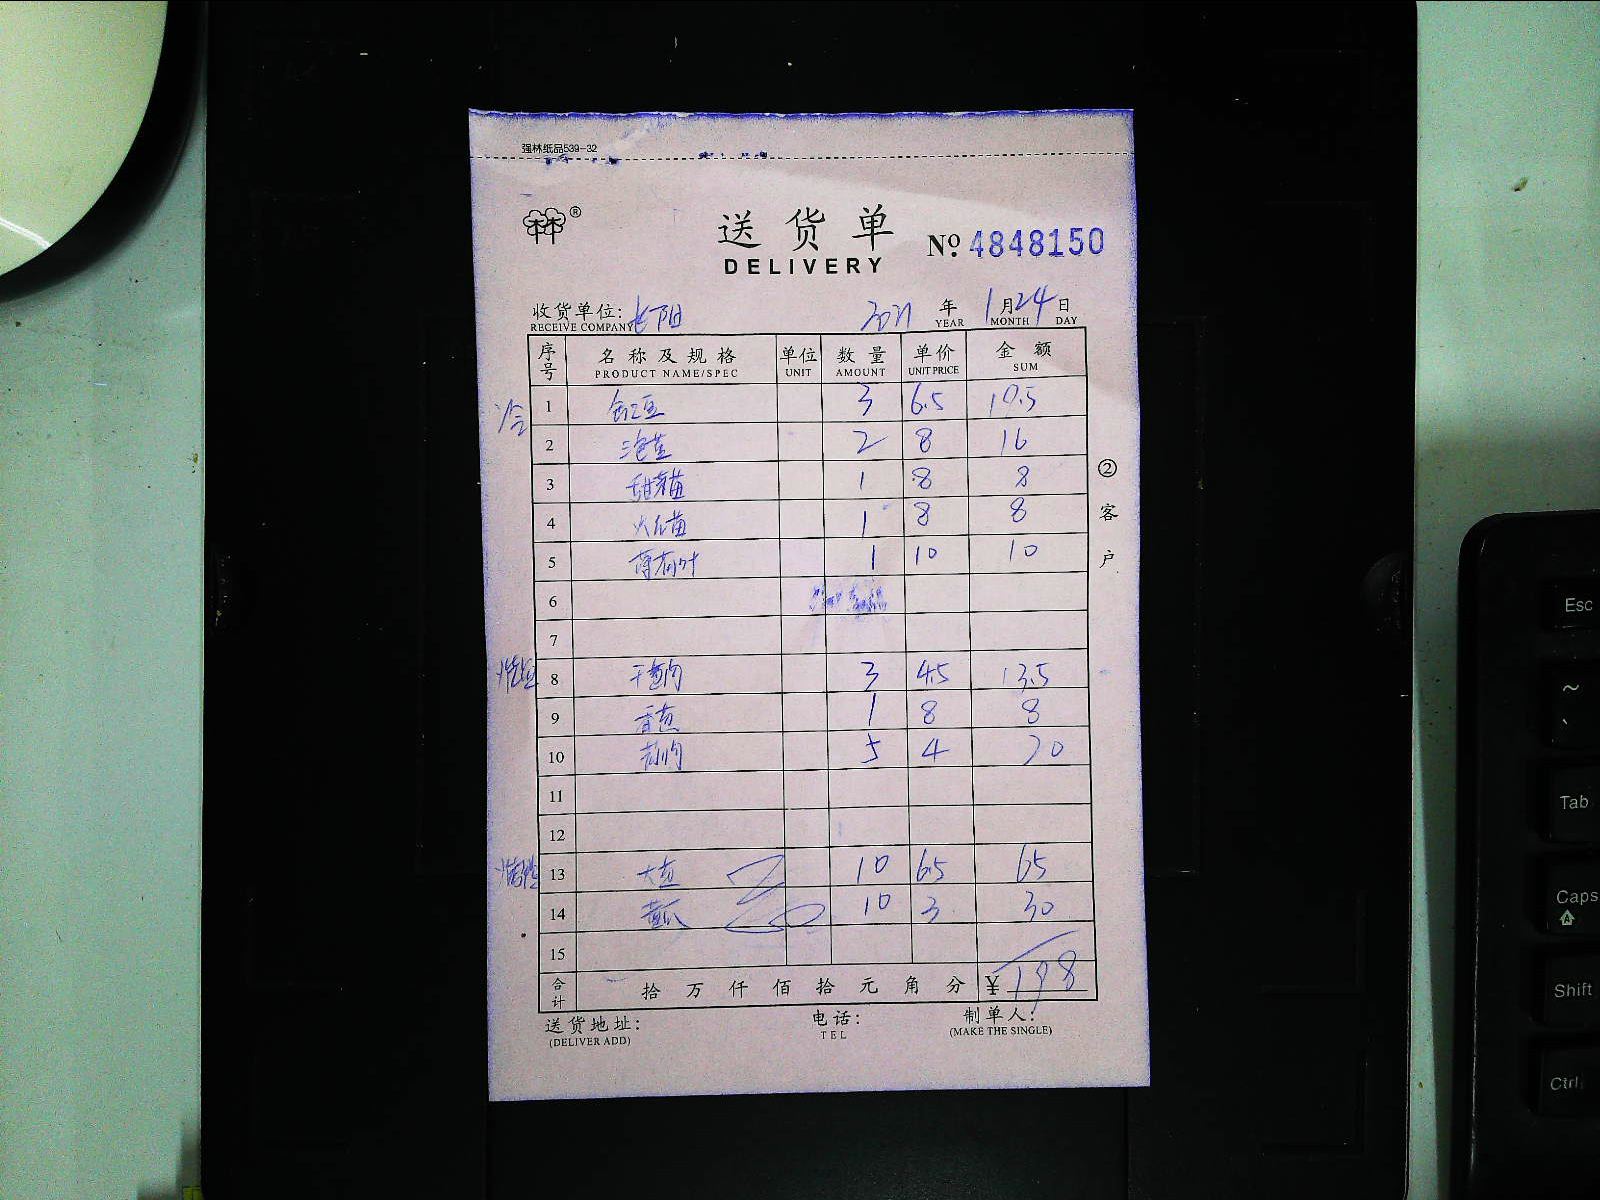 强林纸品539-32
林林 ®
送货单
DELIVERY
№ 4848150
收货单位: 长阳 2021 年 1 月 24 日
RECEIVE COMPANY YEAR MONTH DAY
序号 名称及规格 单位 数量 单价 金额
PRODUCT NAME/SPEC UNIT AMOUNT UNIT PRICE SUM
冷 1 3 6.5 19.5
2 2 8 16
3 甜菜苗 1 8 8
4 苗 1 8 8
5 薄荷叶 1 10 10
6
7
8 干葱肉 3 4.5 13.5
9 香葱 1 8 8
10 5 4 20
11
12
13 大葱 10 6.5 65
14 黄瓜 10 3 30
15
合计 拾 万 仟 佰 拾 元 角 分 ¥ 198
②客户
送货地址: 电话: 制单人:
(DELIVER ADD) TEL (MAKE THE SINGLE)
Esc
~
`
Tab
Caps
A
Shift
Ctrl